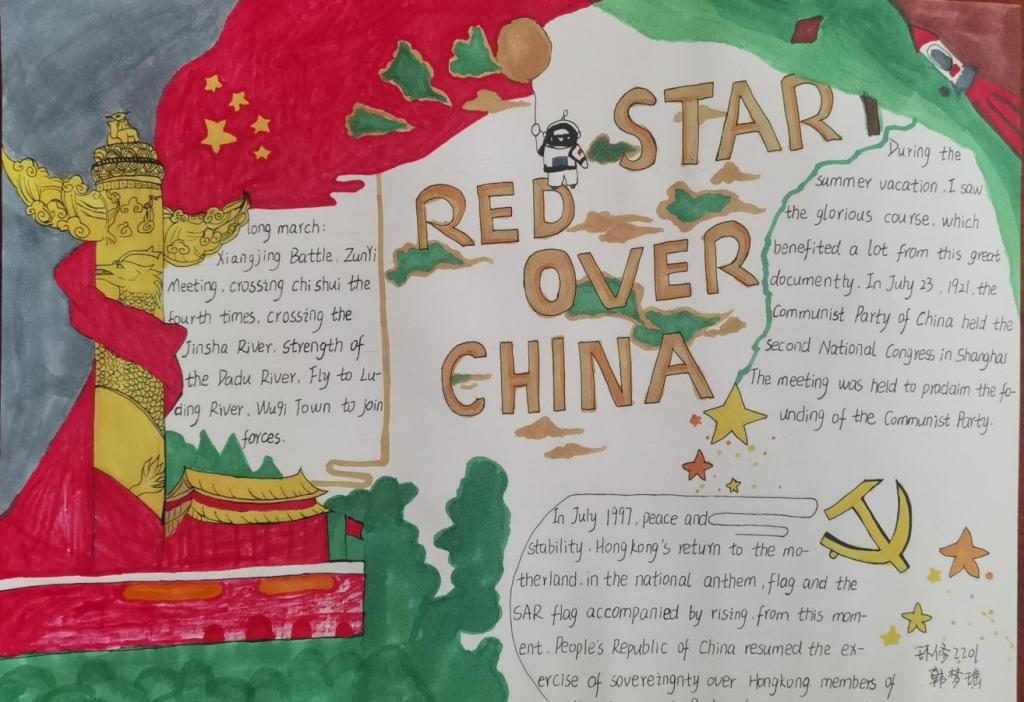 STAR
RED
OVER
CHINA
long march:
Xiangjing Battle. ZunYi
Meeting. crossing chi shui the
fourth times. crossing the
Jinsha River. strength of
the Dadu River. Fly to Lu-
ding River. Wuqi Town to join
forces.
During the
summer vacation. I saw
the glorious course. which
benefited a lot from this great
documently. In July 23, 1921. the
Communist Party of China held the
second National Congress in Shanghai
The meeting was held to proclaim the fo-
unding of the Communist Party.
In July 1997, peace and
stability. Hongkong's return to the mo-
therland. in the national anthem, flag and the
SAR flag accompanied by rising. from this mom-
ent. People's Republic of China resumed the ex-
ercise of sovereingnty over Hongkong members of
环修2201
韩梦瑶